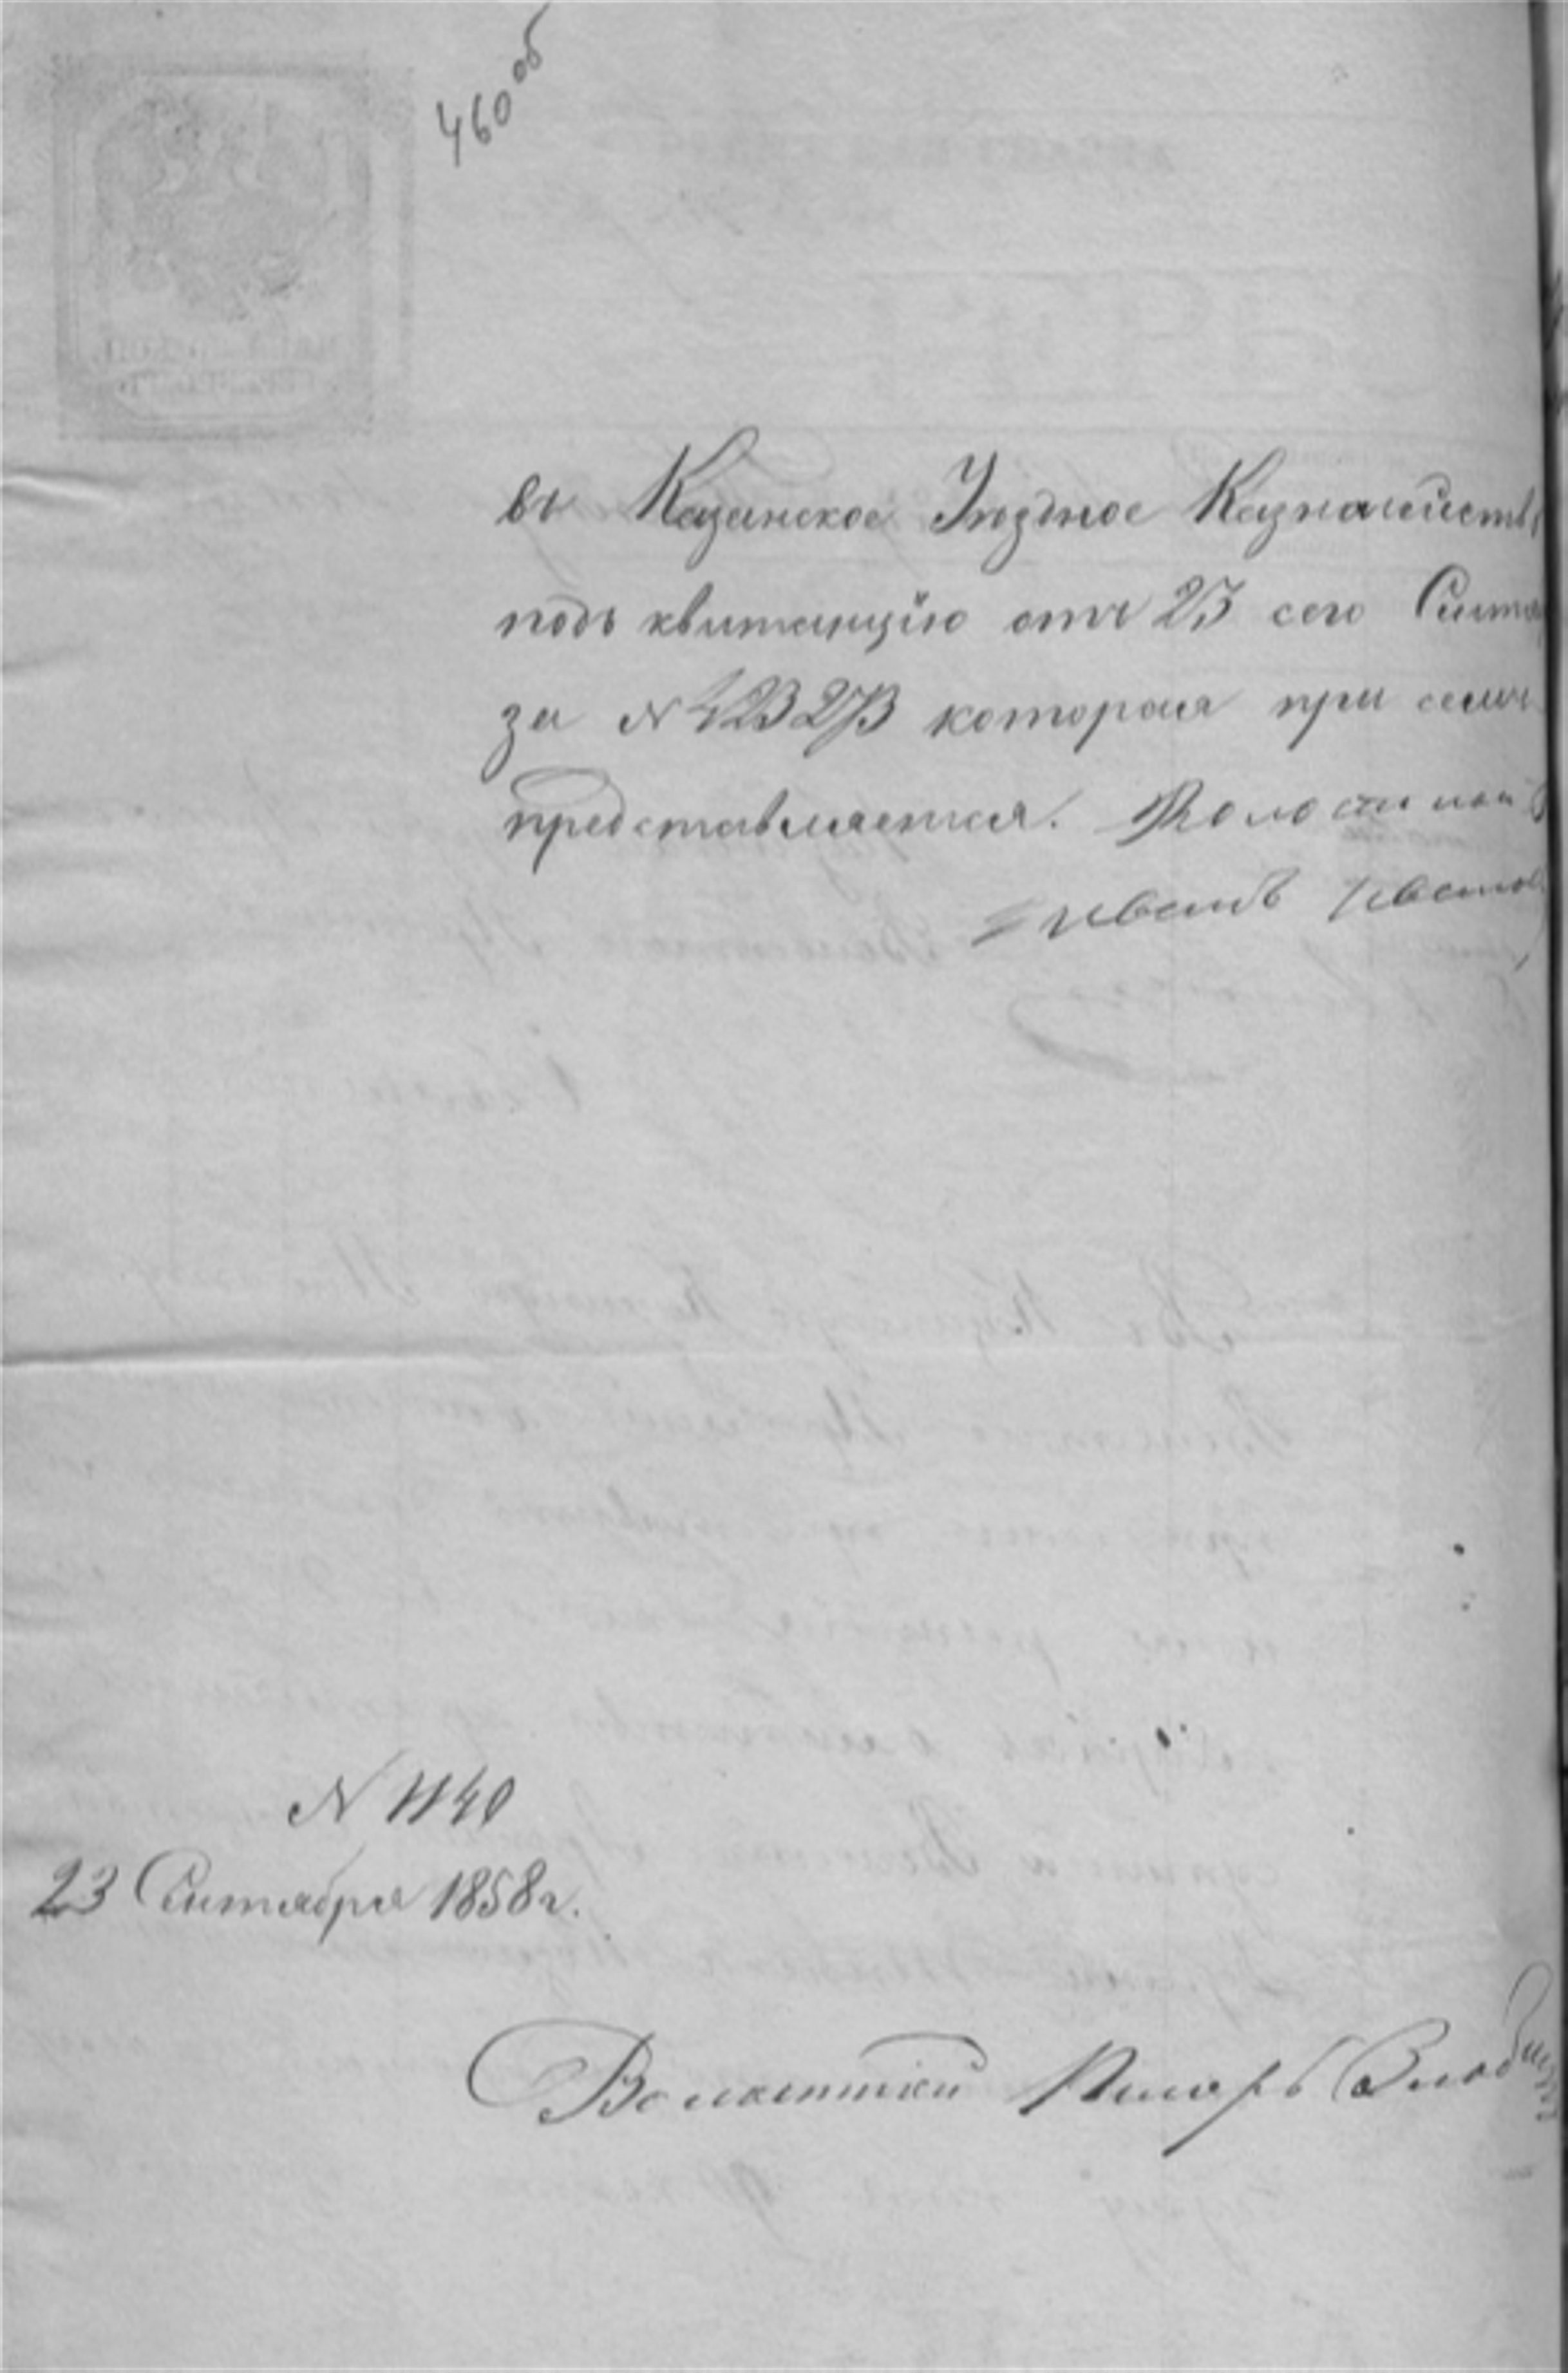 460 об
въ Казанское Уѣздное Казначейств
подъ квитанцію отъ 23 сего Сентя
за № которая при семъ
представляется.
Иванъ Иванов
№ 1140
23 Сентября 1858 г.
Волостной Писарь